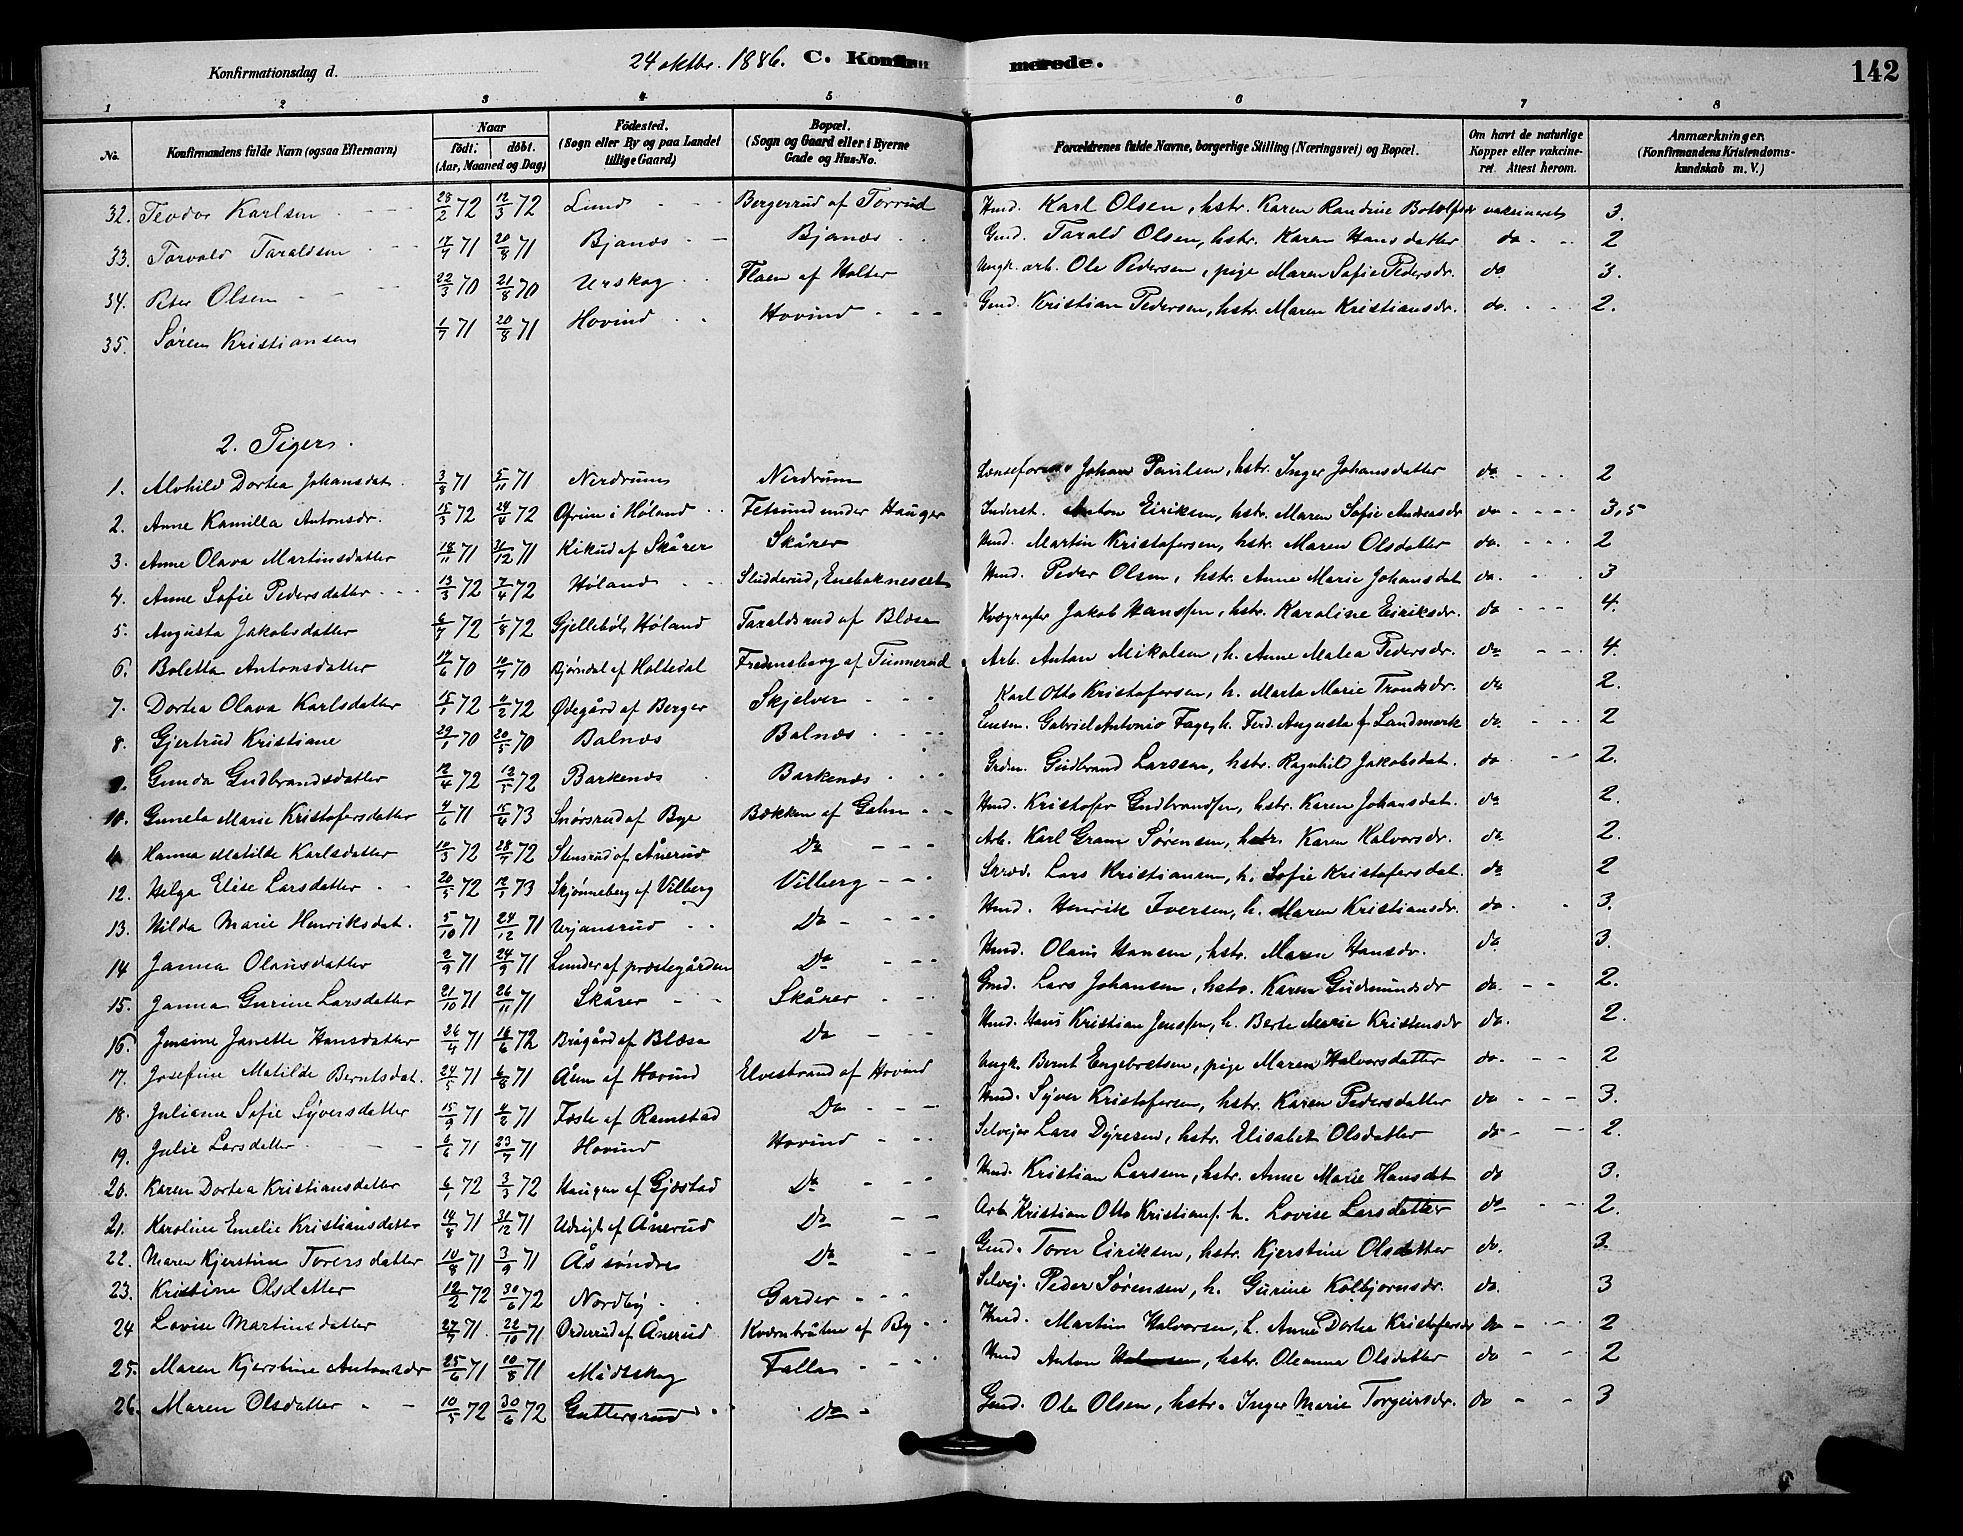 Konfirmationsdag d. 24 oktbr. 1886. C. Konfirmerede. 142
1 2 3 4 5 6 7 8
No. Konfirmandens fulde Navn (ogsaa Efternavn) Naar født: døbt. (Aar, Maaned og Dag) Fødested. (Sogn eller By og paa Landet tillige Gaard) Bopæl. (Sogn og Gaard eller i Byerne Gade og Hus-No. Forældrenes fulde Navne, borgerlige Stilling (Næringsvei) og Bopæl. Om havt de naturlige Kopper eller vakcineret. Attest herom. Anmærkninger. (Konfirmandens Kristendomskundskab m. V.)
32. Teodor Karlsen 28/2 72 12/3 72 Lund Bergerrud af Torrud Hmd. Karl Olsen, hstr. Karen Randine Botolfsdr vakcineret 3.
33. Torvald Taraldsen 17/4 71 20/8 71 Bjanæs Bjanæs Gmd. Tarald Olsen, hstr. Karen Hansdatter do 2
34. Peter Olsen 22/3 70 21/8 70 Urskog Flaen af Holter Ungk. arb. Ole Pedersen, pige Maren Sofie Pedersdr. do 3.
35. Søren Kristiansen 1/7 71 20/8 71 Hovind Hovind Gmd. Kristian Pedersen, hstr. Maren Kristiansdr. do 2.
2. Piger.
1. Alvhild Dortea Johansdat. 3/8 71 5/11 71 Nerdrum Nerdrum Johan Paulsen, hstr. Inger Johansdatter do 2
2. Anne Kamilla Antonsdr. 15/3 72 24/4 72 Ofrim i Høland Fetsund under Hauger Inderst. Anton Eiriksen, hstr. Maren Sofie Andreasdr do 3,5
3. Anne Olava Martinsdatter 18/11 71 31/12 71 Kikud af Skårer Skårer Hmd. Martin Kristofersen, hstr. Maren Olsdatter do 2
4. Anne Sofie Pedersdatter 13/3 72 7/4 72 Høland Sludderud, Enebaknesset Hmd. Peder Olsen, hstr. Anne Marie Johansdat do. 3
5. Augusta Jakobsdatter 6/7 72 1/8 72 Gjellebøl, Høland Taraldsrud af Blæsa Jakob Hanssen, hstr. Karoline Eiriksdr. do 4.
6. Boletta Antonsdatter 17/6 70 10/7 70 Bjørndal af Holtedal Fredensborg af Tinnerud Arb. Anton Mikalsen, h. Anne Malea Pedersdr. do 4.
7. Dortea Olava Karlsdatter 15/1 72 11/2 72 Ødegård af Berger Skjelver Karl Otto Kristofersen, h. Marta Marie Trondsdr. do 2.
8. Gjertrud Kristiane 29/1 70 20/5 70 Balnæs Balnæs Lensm. Gabriel Antonio Faye, h. Ferd. Augusta f. Landmark do 2
9. Gunda Gudbrandsdatter 12/4 72 12/5 72 Barkenæs Barkenæs Grdm. Gudbrand Larssen, hstr. Ragnhil Jakobsdat. do 2.
10. Gunela Marie Kristofersdatter 4/6 71 15/6 73 Snørsrud af Bye Bækken af Galm Hmd. Kristofer Gudbrandsen, hstr. Karen Johansdat. do 2.
Hanna Matilde Karlsdatter 10/3 72 28/7 72 Stensrud af Ånerud Do Arb. Karl Gram Sørensen, hstr. Karen Halvorsdr. do 2.
12. Helga Elise Larsdatter 20/5 72 12/1 73 Skjønneberg af Vilberg Vilberg Skræd. Lars Kristiansen, h. Sofie Kristofersdat. do 2
13. Hilda Marie Henriksdat. 5/10 71 24/12 71 Urjansrud Do Hmd. Henrik Iversen, h. Maren Kristiansdr. do. 3.
14 Janna Olausdatter 2/9 71 24/9 71 Lunder af præstegården Do Hmd. Olaus Hansen, hstr. Maren Hansdr. do 3.
15. Janna Gurine Larsdatter 21/10 71 26/11 71 Skårer Skårer Gmd. Lars Johansen, hstr. Karen Gudmundsdr do. 2.
16. Jensine Janette Hansdatter 26/4 71 16/6 72 Brågård af Blæsa Do Hmd. Hans Kristian Jenssen, h. Berte Marie Kristensdr do. 2.
17. Josefine Matilde Berntsdat. 24/5 71 6/8 71 Åen af Hovind Elvestrand af Hovind Ungk. Bernt Engebretsen, pige Maren Halvorsdatter do. 2
18. Juliane Sofie Syversdatter 15/9 71 4/2 71 Foste af Ramstad Do Hmd. Syver Kristofersen, hstr. Karen Pedersdatter do 3.
19. Julie Larsdatter 6/6 71 23/7 71 Hovind Hovind Selvejer Lars Dyresen, hstr. Elisabet Olsdatter do 2.
20. Karen Dortea Kristiansdatter 6/1 72 3/3 72 Haugen af Gjøstad Do Hmd. Kristian Larssen, hstr. Anne Marie Hansdat do 3.
21. Karoline Emelie Kristiansdatter 14/8 71 31/12 71 Udsigt af Ånerud Do Arb. Kristian Otto Kristians. h. Lovise Larsdatter do 2.
22. Maren Kjerstine Torersdatter 10/8 71 3/9 71 Ås søndre Do Gmd. Torer Eiriksen, hstr. Kjerstine Olsdatter do. 3.
23. Kristine Olsdatter 12/2 72 30/6 72 Nordby Garder Selvej. Peder Sørensen, h. Gurine Kolbjørnsdr. do 3
24 Lovise Martinsdatter 27/7 71 22/10 71 Orderud af Ånerud Kværnbråten af By Hmd. Martin Halvorsen, h. Anne Dortea Kristofersdr do 2
25. Maren Kjerstine Antonsdr 25/6 71 10/8 71 Midtskog Falla Hmd Anton Halvorsen, hstr. Oleanna Olsdatter do 2
26. Maren Olsdatter 10/5 72 30/6 72 Guttersrud Do Gmd. Ole Olsen, hstr. Inger Marie Torgeirsdr. do 3